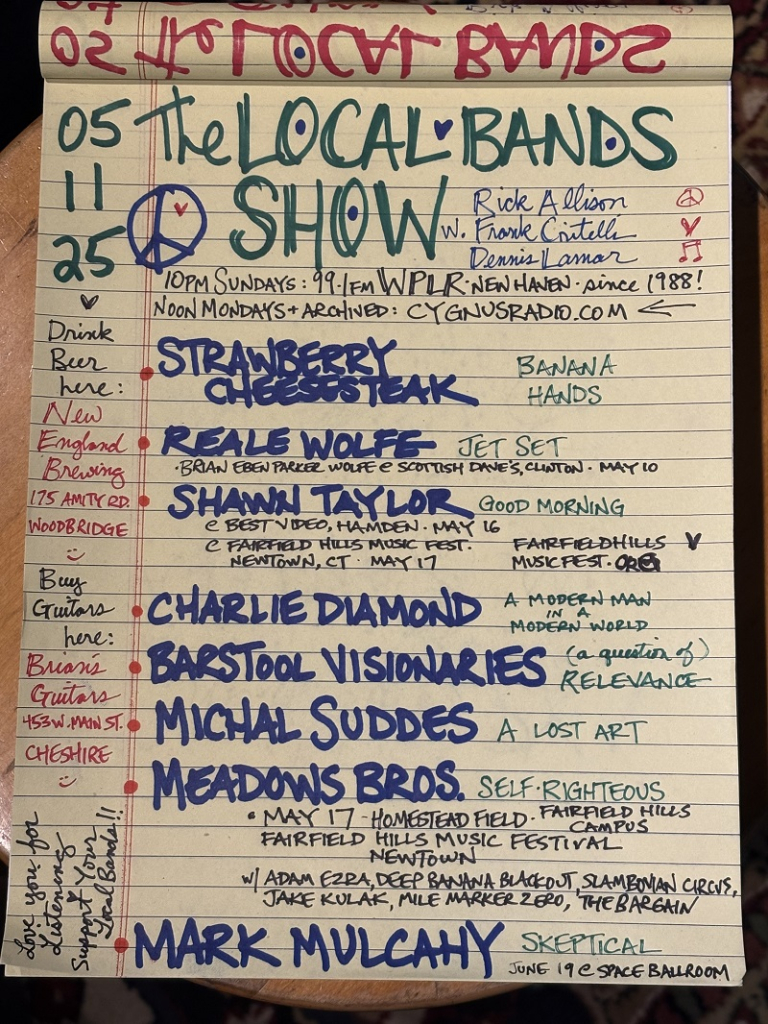 02 The LOCAL BANDS
05 The LOCAL BANDS
11 SHOW
25
Rick Allison
w. Frank Critelli
Dennis Lamar
10PM SUNDAYS: 99.1FM WPLR · NEW HAVEN · since 1988!
NOON MONDAYS + ARCHIVED: CYGNUSRADIO.COM ←
Drink
Beer
here:
New
England
Brewing
175 AMITY RD.
WOODBRIDGE
Buy
Guitars
here:
Brian's
Guitars
453 W. MAIN ST.
CHESHIRE
Love you for
Listening
Support Your
Local Bands!!
• STRAWBERRY
CHEESESTEAK
BANANA
HANDS
• REALE WOLFE JET SET
· BRIAN EBEN PARKER WOLFE @ SCOTTISH DAVE'S, CLINTON · MAY 10
• SHAWN TAYLOR GOOD MORNING
@ BEST VIDEO, HAMDEN · MAY 16
@ FAIRFIELD HILLS MUSIC FEST.
NEWTOWN, CT · MAY 17
FAIRFIELDHILLS
MUSICFEST.ORG
• CHARLIE DIAMOND
A MODERN MAN
IN A
MODERN WORLD
• BARSTOOL VISIONARIES (a question of)
RELEVANCE
• MICHAL SUDDES A LOST ART
• MEADOWS BROS. SELF·RIGHTEOUS
• MAY 17 · HOMESTEAD FIELD · FAIRFIELD HILLS
CAMPUS
FAIRFIELD HILLS MUSIC FESTIVAL
NEWTOWN
w/ ADAM EZRA, DEEP BANANA BLACKOUT, SLAMBOVIAN CIRCUS,
JAKE KULAK, MILE MARKER ZERO, THE BARGAIN
• MARK MULCAHY SKEPTICAL
JUNE 19 @ SPACE BALLROOM